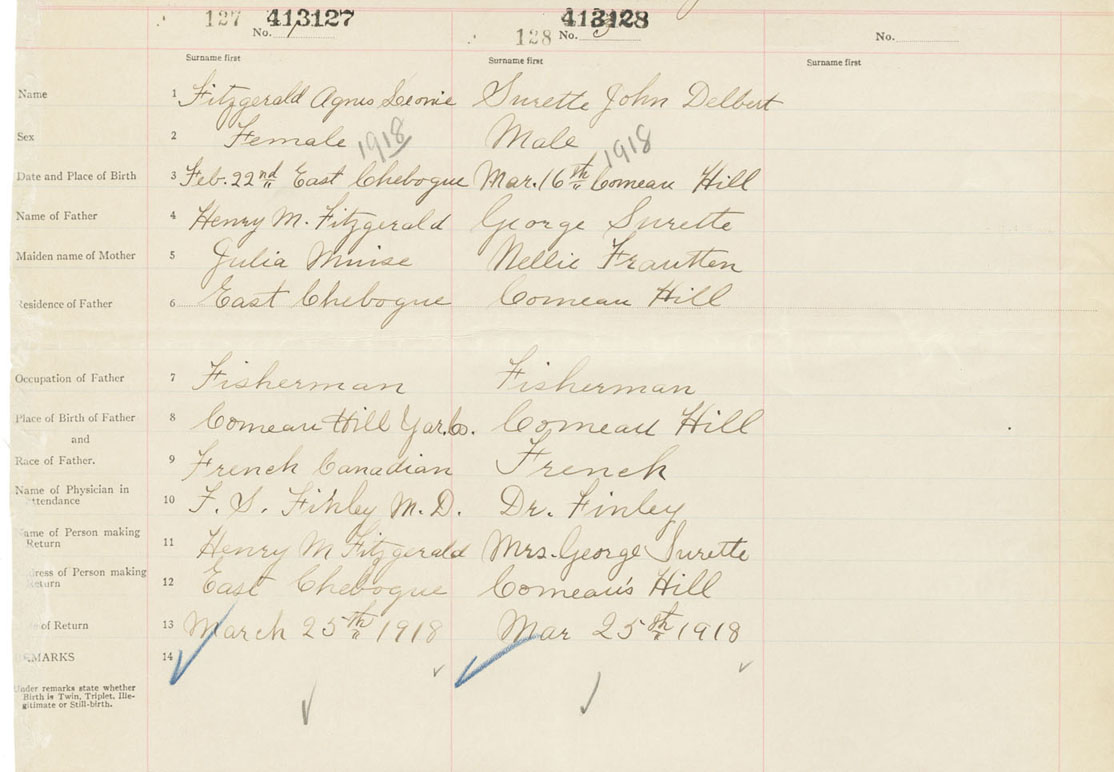 127 413127
No. 1
128 413128
No. 3
No.
Surname first Surname first Surname first
Name 1 Fitzgerald Agnes Leonie Surette John Delbert
Sex 2 Female 1918 Male 1918
Date and Place of Birth 3 Feb. 22nd East Chebogue Mar. 16th Comeau Hill
Name of Father 4 Henry M. Fitzgerald George Surette
Maiden name of Mother 5 Julia Muise Nellie Frautten
Residence of Father 6 East Chebogue Comeau Hill
Occupation of Father 7 Fisherman Fisherman
Place of Birth of Father 8 Comeau Hill Yar. Co. Comeau Hill
and
Race of Father. 9 French Canadian French
Name of Physician in
ttendance 10 F. S. Finley M.D. Dr. Finley
ame of Person making
Return 11 Henry M Fitzgerald Mrs. George Surette
dress of Person making
Return 12 East Chebogue Comeau's Hill
of Return 13 March 25th 1918 Mar 25th 1918
EMARKS 14
Under remarks state whether
Birth is Twin, Triplet, Ille-
gitimate or Still-birth.